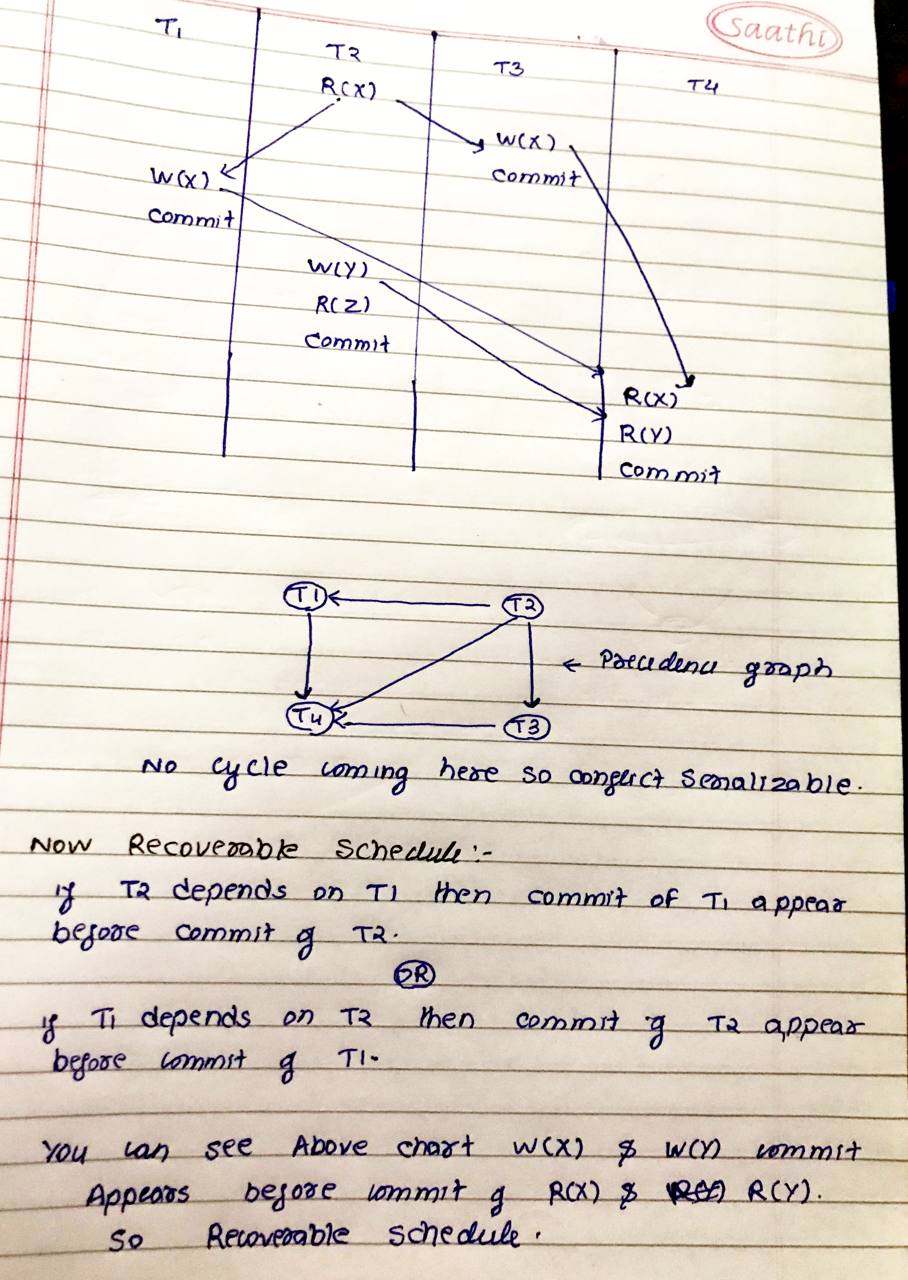 Saathi
T1 T2 T3 T4
R(X)
W(X)
commit
W(X)
commit
W(Y)
R(Z)
commit
R(X)
R(Y)
commit
T1 T2
← Precedence graph
T4 T3
No cycle coming here so conflict Serializable.
Now Recoverable Schedule :-
if T2 depends on T1 then commit of T1 appear
before commit of T2.
OR
if T1 depends on T2 then commit of T2 appear
before commit of T1.
You can see Above chart W(X) & W(Y) commit
Appears before commit of R(X) & R(Y).
So Recoverable schedule.